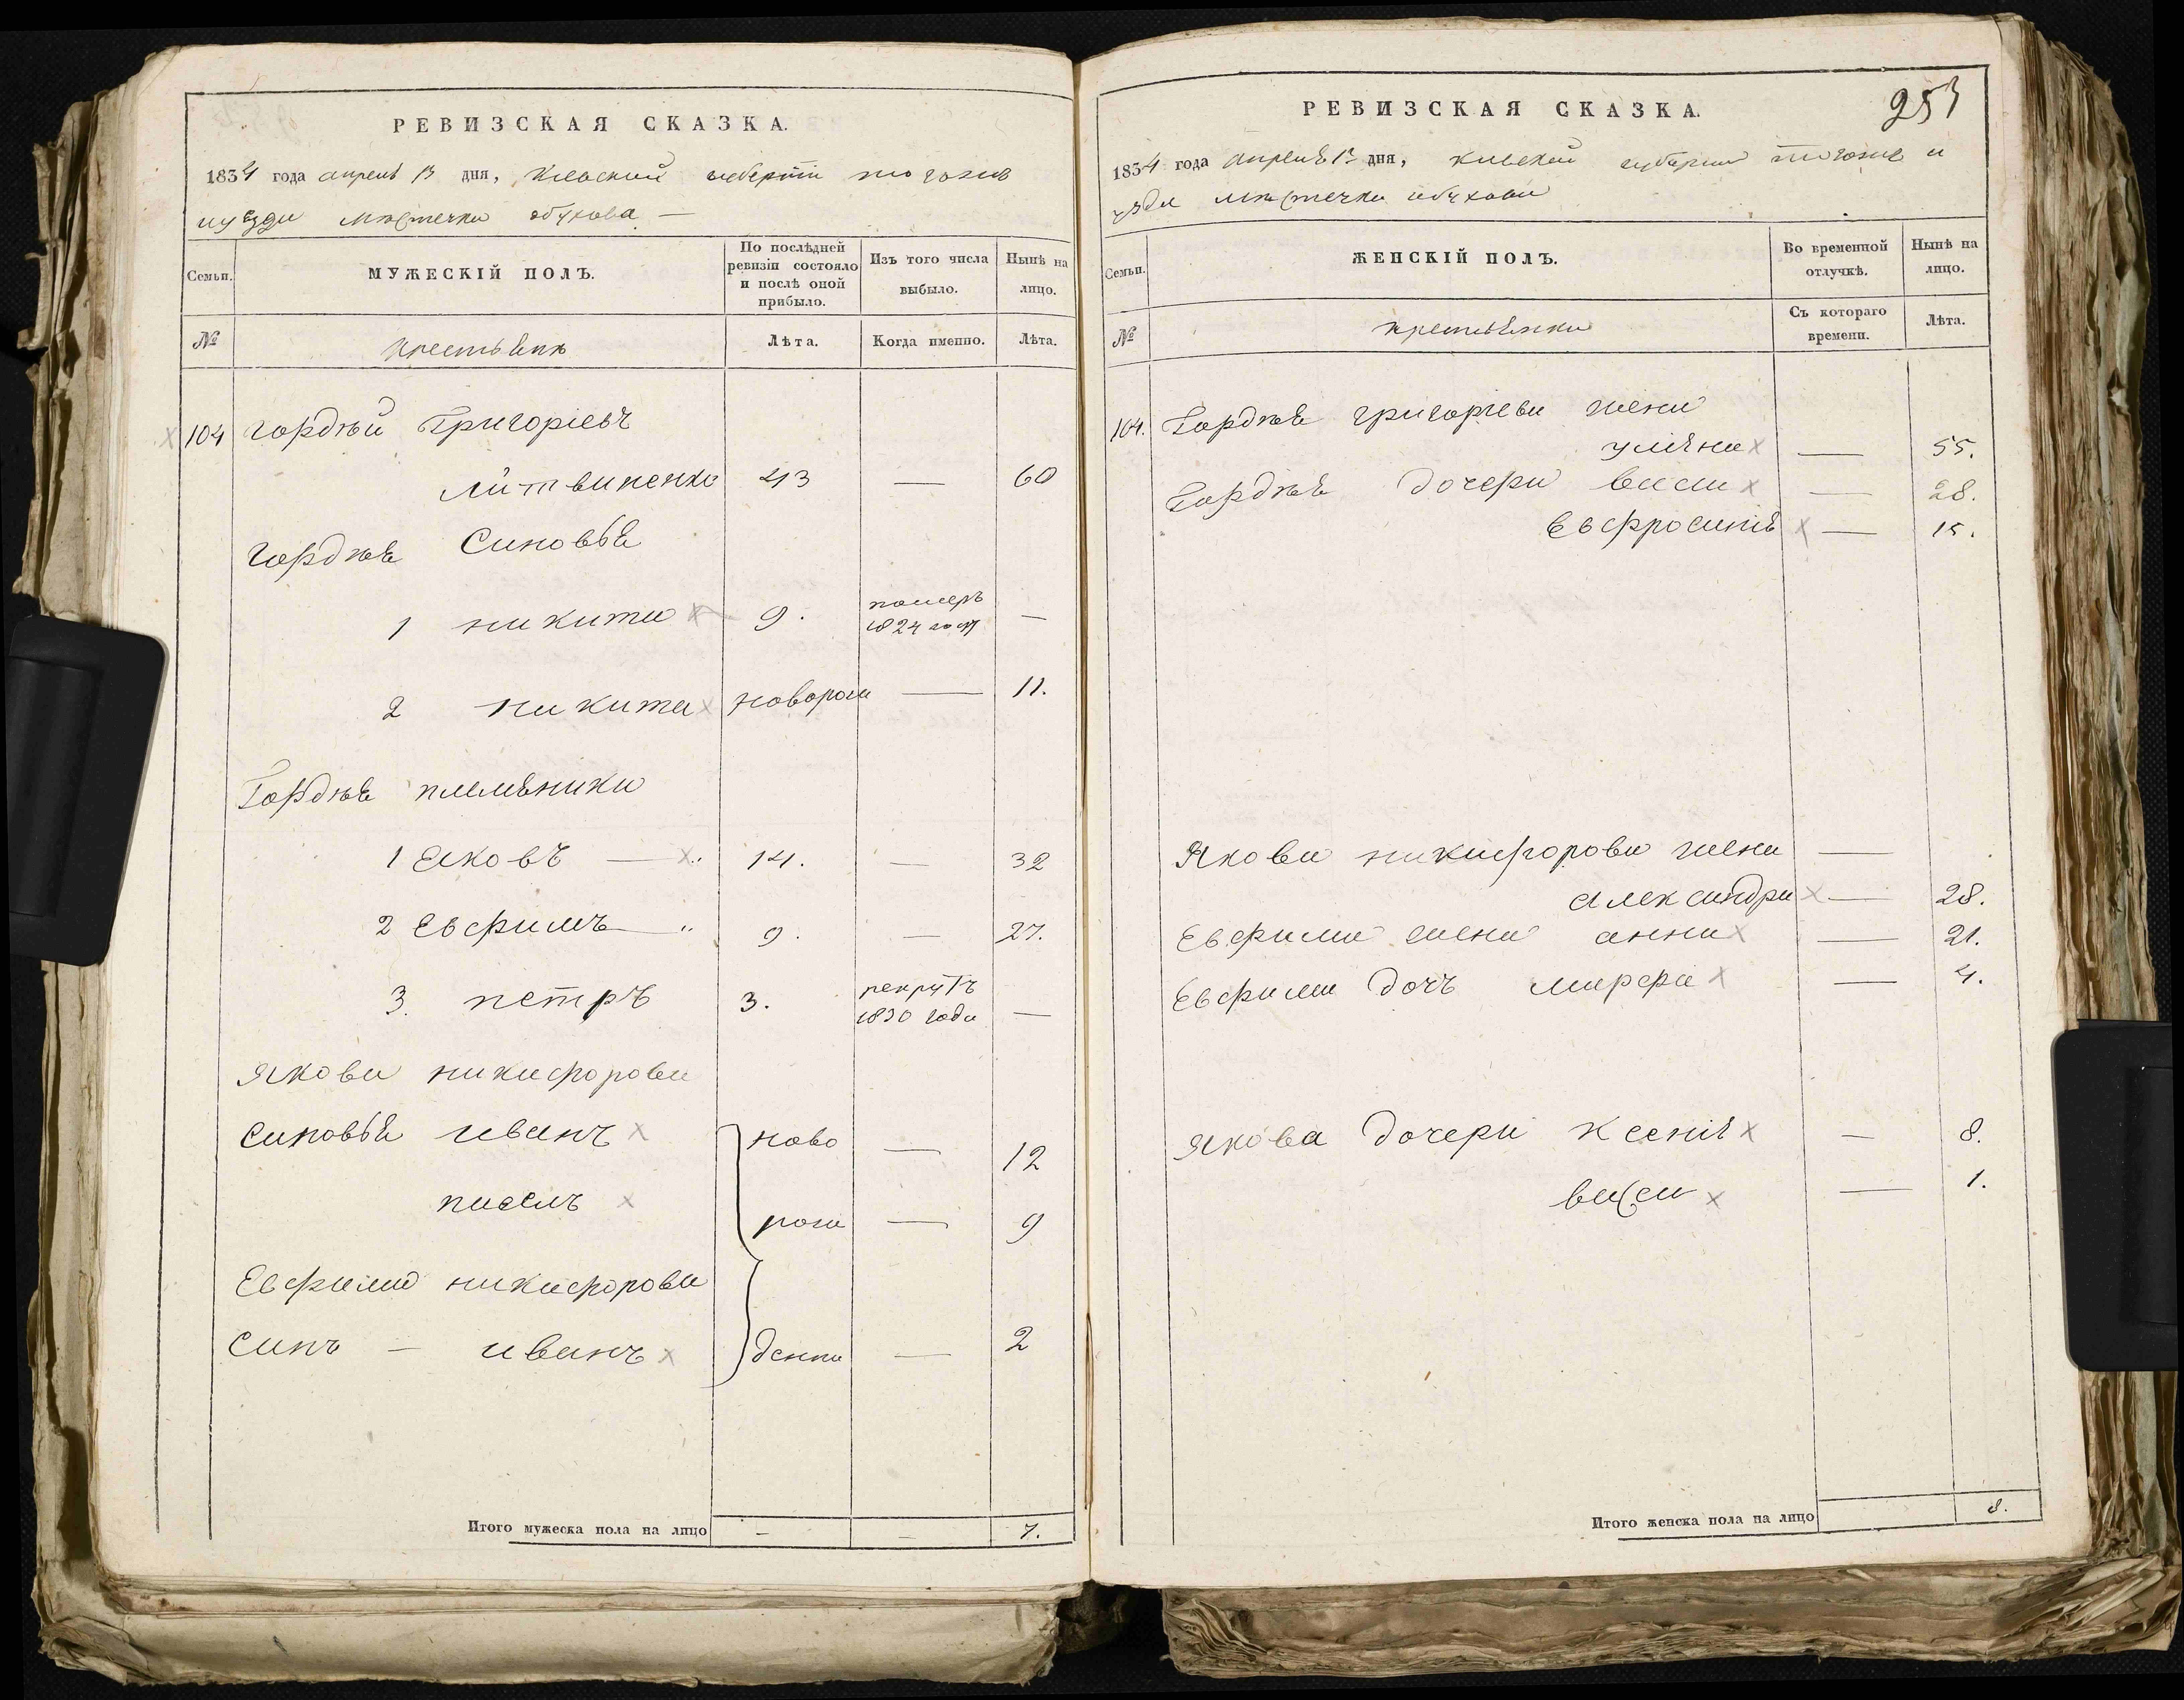 РЕВИЗСКАЯ СКАЗКА.
1834 года апреля дня, Киевской губернии того же
и уезда местечка обухова —
Семьи.
МУЖЕСКІЙ ПОЛЪ.
По послѣдней ревизіи состояло и послѣ оной прибыло.
Изъ того числа выбыло.
Нынѣ на лицо.
№
крестьянъ
Лѣта.
Когда именно.
Лѣта.
104 Гордѣй Григоріевъ
Литвиненко 43 — 60
Гордѣя Синовья
1 никита 9. померъ 1824 году —
2 никита новорож — 11.
Гордѣя племяники
1 Яковъ — 14. — 32
2 Евфимъ — 9. — 27.
3. петръ 3. рекрутъ 1830 года —
Якова никифорова
Синовья иванъ ново — 12
павелъ рож — 9
Евфима никифорова
Синъ — иванъ денни — 2
Итого мужеска пола на лицо — — 7.
РЕВИЗСКАЯ СКАЗКА. 253
1834 года апреля дня, киевской губернии того же и
уезда местечка обухова
Семьи.
ЖЕНСКІЙ ПОЛЪ.
Во временной отлучкѣ.
Нынѣ на лицо.
№
крестьянки
Съ котораго времени.
Лѣта.
104. Гордѣя григоріева жена
уляна — 55.
Гордѣя дочери васса — 28.
Евфросинія — 15.
Якова никифорова жена —
александра — 28.
Евфима жена анна — 21.
Евфима дочъ марфа — 4.
Якова дочери Ксенія — 8.
васса — 1.
Итого женска пола на лицо 8.